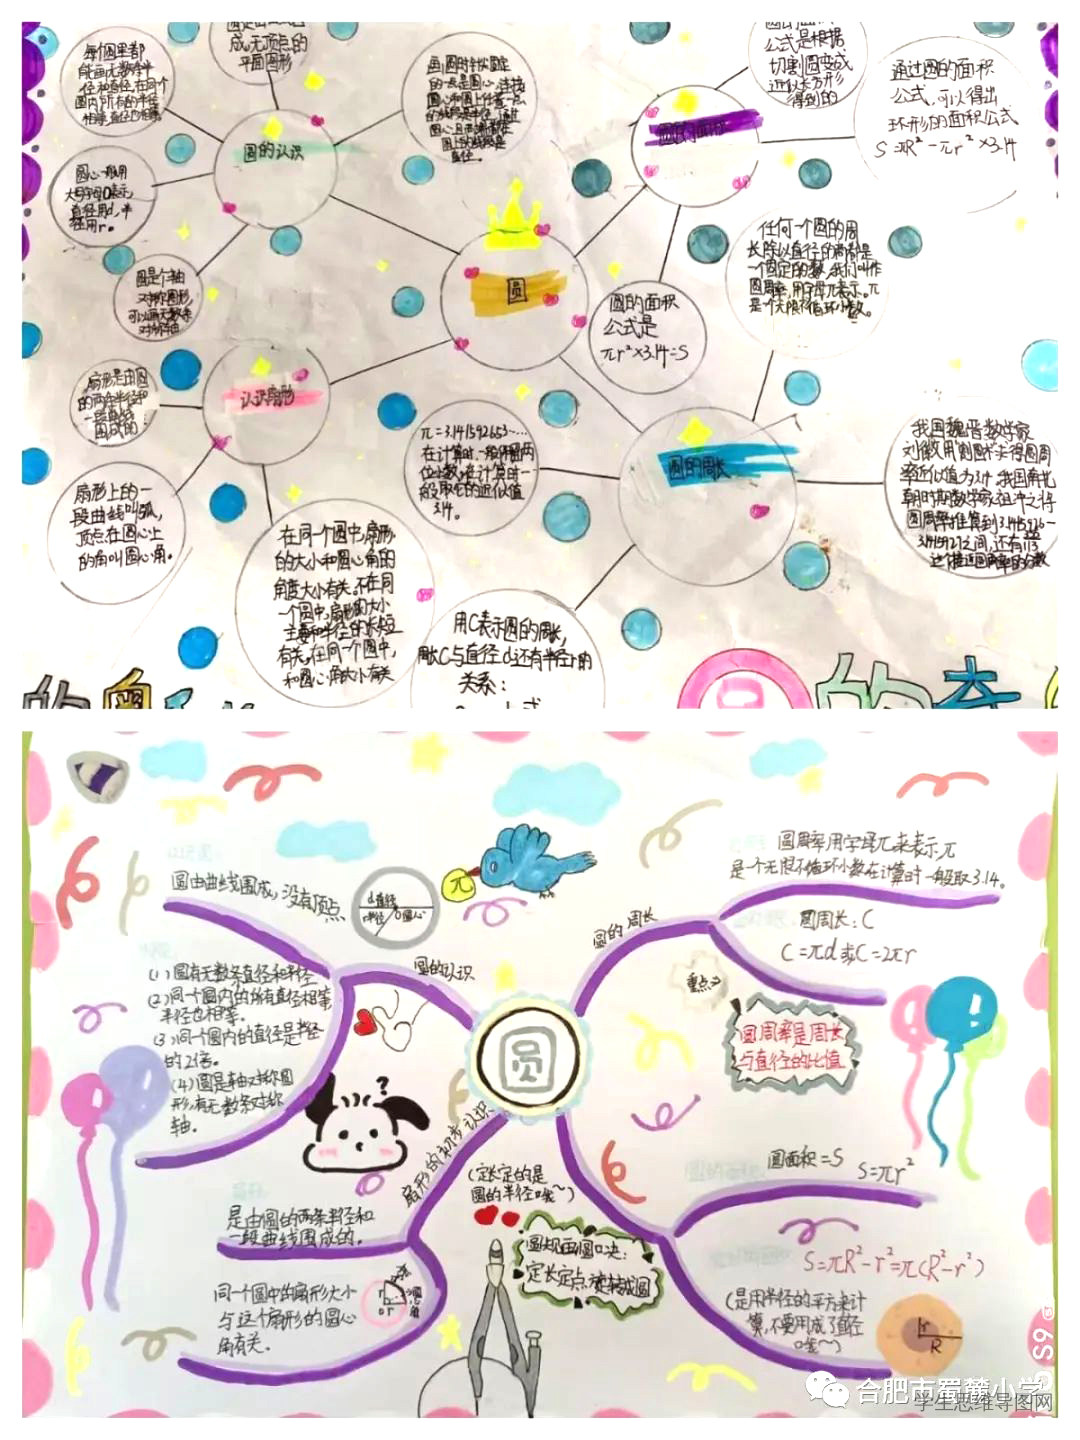 每个圆里都
能画无数条半
径和直径,在同个
圆内所有的半径
相等,直径也相等。
成,无顶点的
平面图形
圆的认识
画圆时针尖固定
的一点是圆心,连接
圆心和圆上任意一点
的线段是半径,通过
圆心且两端都在
圆上的线段是
直径。
圆心一般用
大写字母O表示,
直径用d,半
径用r。
圆是个轴
对称图形,
可以画无数条
对称轴
圆
圆的面积
公式是根据
切割圆变成
近似长方形
得到的
通过圆的面积
公式,可以得出
环形的面积公式
S=πR²-πr²×3.14
圆的面积
公式是
πr²×3.14=S
任何一个圆的周
长除以直径的商都是
一个固定的数,我们叫作
圆周率,用字母π表示。π
是一个无限不循环小数。
认识扇形
扇形是由圆
的两条半径和
一段曲线
围成的
扇形上的一
段曲线叫弧,
顶点在圆心上
的角叫圆心角。
在同一个圆中,扇形
的大小和圆心角的
角度大小有关,不在同
一个圆中,扇形的大小
主要和半径的长短
有关,在同一个圆中,
和圆心角大小有关
π=3.141592653……
在计算时,一般保留两
位小数,在计算时一
般取它的近似值
3.14。
圆的周长
我国魏晋数学家
刘徽用"割圆术"求得圆周
率近似值为3.14,我国南北
朝时期数学家祖冲之将
圆周率推算到3.1415926-
3.1415927之间,还有
用C表示圆的周长,
周长C与直径d还有半径r的
关系:
的奥
圆的奇
圆由曲线围成,没有顶点
d直径
r半径
O圆心
π
圆的认识
(1)圆有无数条直径和半径
(2)同一个圆内的所有直径相等
半径也相等。
(3)同一个圆内的直径是半径
的2倍。
(4)圆是轴对称图
形,有无数条对称
轴。
圆
圆的周长
圆周率用字母π来表示,π
是一个无限不循环小数在计算时一般取3.14。
圆周长:C
C=πd或C=2πr
重点
圆周率是周长
与直径的比值
?
扇形的初步认识
是由圆的两条半径和
一段曲线围成的。
同一个圆中的扇形大小
与这个扇形的圆心
角有关。
(定长定的是
圆的半径哦~)
圆规画圆口决:
定长定点,旋转成圆
圆面积=S
S=πr²
S=πR²-r²=π(R²-r²)
(是用半径的平方来计
算,不要用成了直径
哦~)
r
R
合肥市蜀麓小学
学生思维导图网